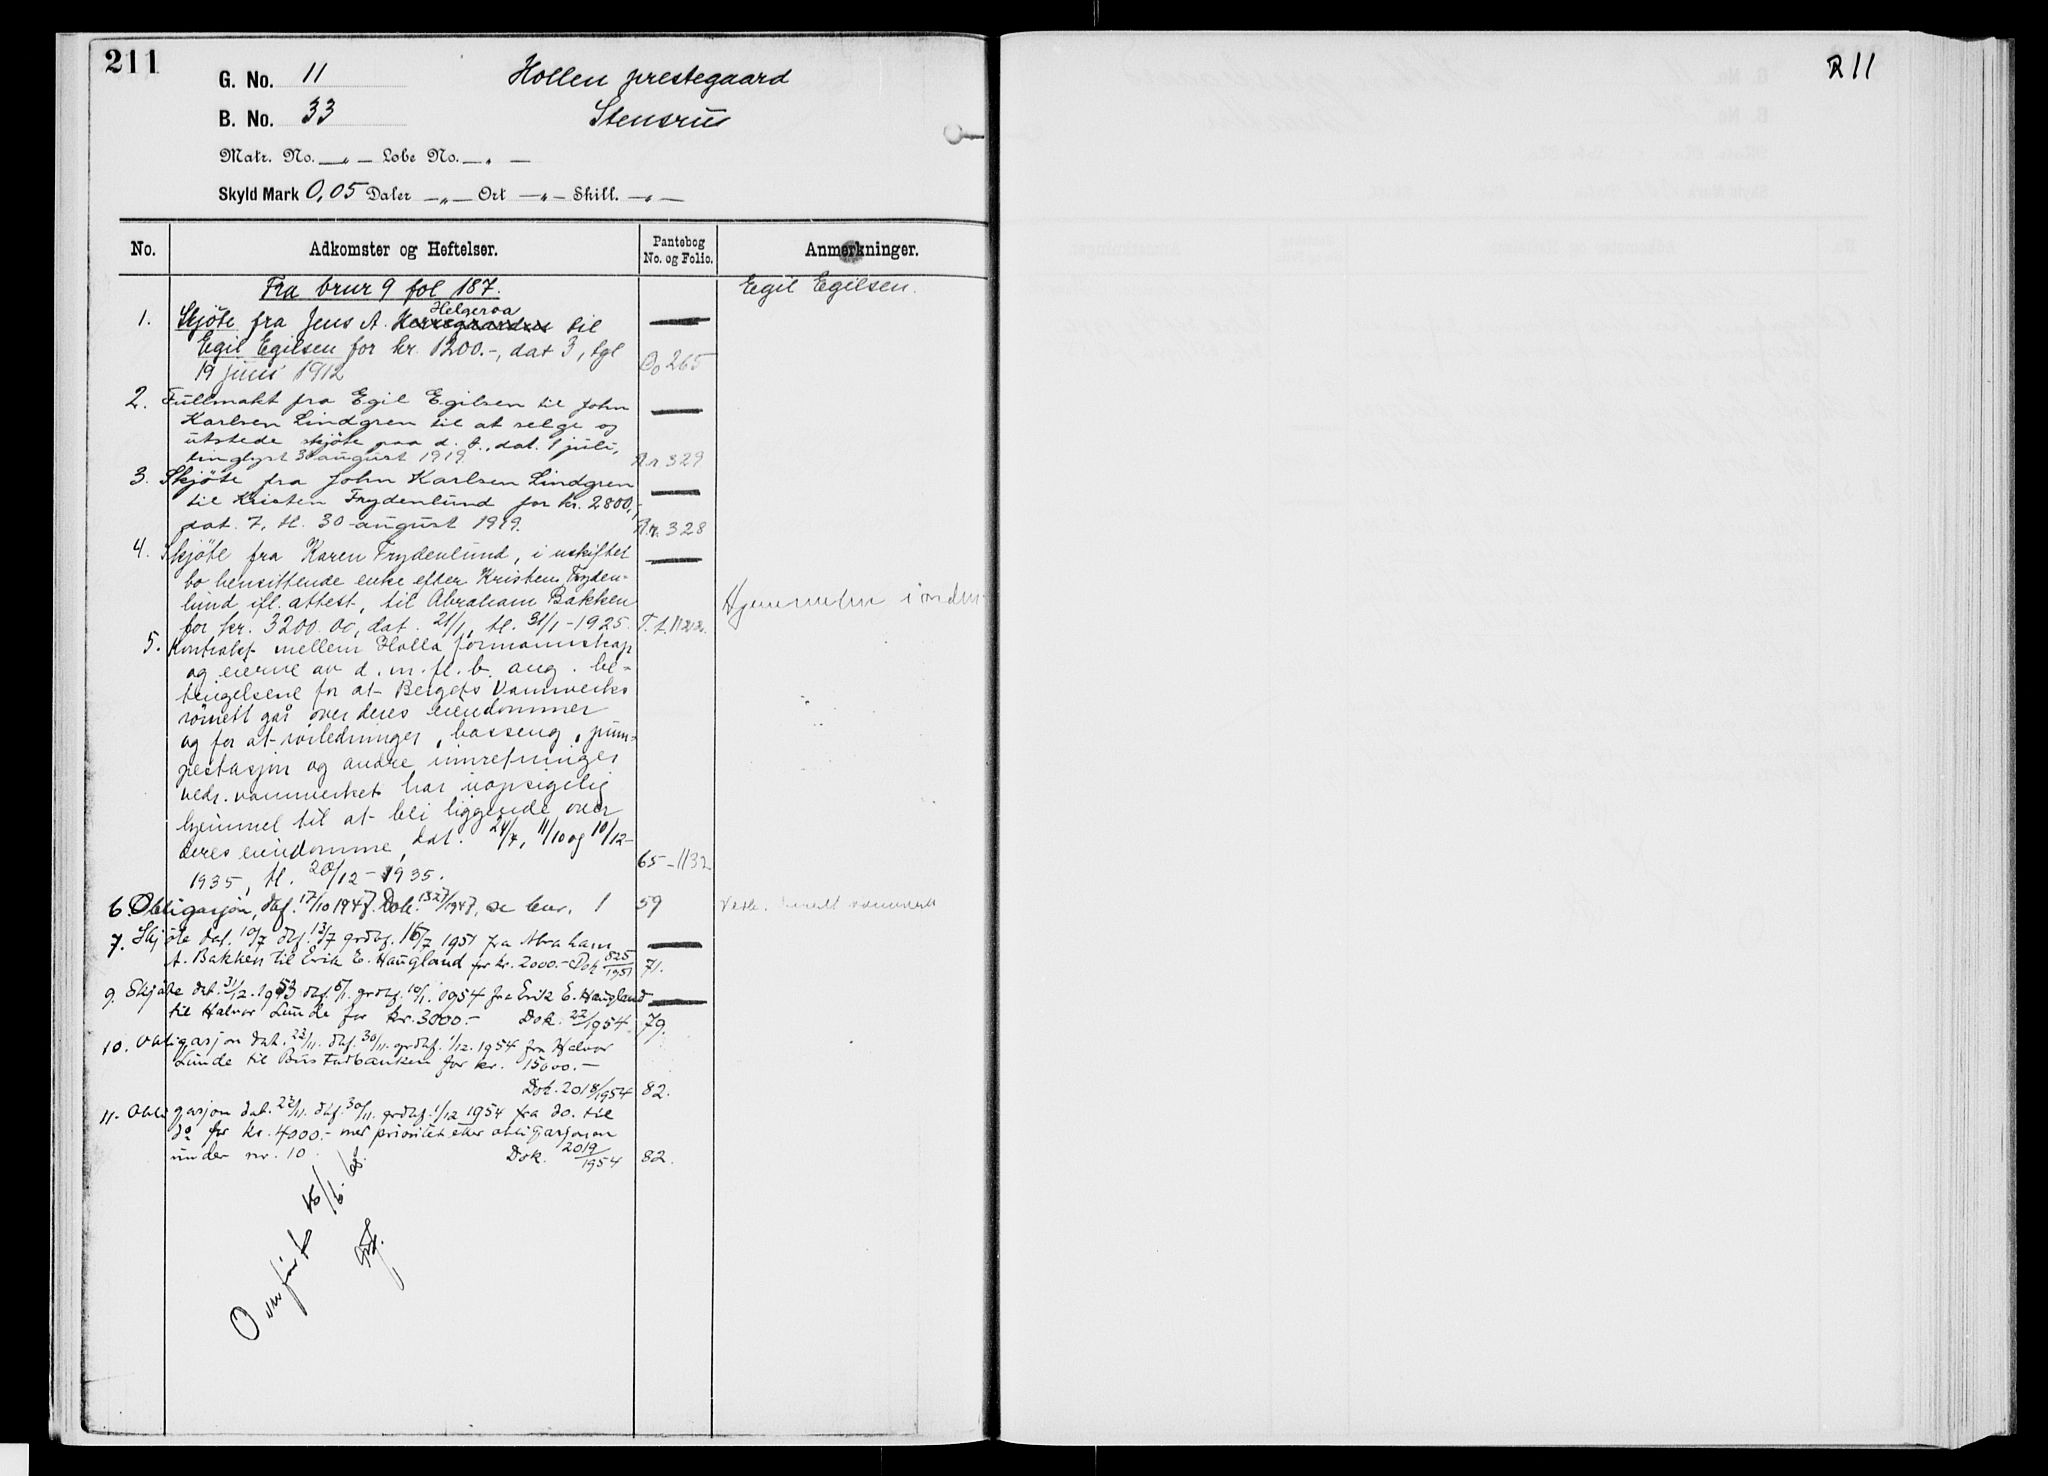 211
G. No. 11 Hollen prestegaard
B. No. 33 Stensrud
Matr. No. — „ — Løbe No. — „ —
Skyld Mark 0,05 Daler — „ — Ort — „ — Skill. — „ —
No. Adkomster og Heftelser. Pantebog No. og Folio. Anmerkninger.
Fra brnr 9 fol 187. Egil Egilsen.
1. Skjöte fra Jens A. Helgeroa til
Egil Egilsen for kr. 1200.-, dat 3, tgl
19 juni 1912 265
2. Fullmakt fra Egil Egilsen til John
Karlsen Lindgren til at selge og
utstede skjöte paa d. e., dat. 1 juli,
tinglyst 30 august 1919 329
3. Skjöte fra John Karlsen Lindgren
til Kristen Frydenlund for kr. 2800,-,
dat. 7, tl. 30 august 1919. 328
4. Skjöte fra Karen Frydenlund, i uskiftet
bo hensittende enke efter Kristen Fryden-
lund ifl. attest, til Abraham Bakken
for kr. 3200.00, dat. 21/1, tl. 31/1-1925.
Hjemmelen i orden
5. Kontrakt mellem Holla formannskap
og eierne av d. m. fl. b. ang. be-
tingelsene for at Bergets Vannverks
rörnett går over deres eiendommer
og for at rörledninger, basseng, pum-
pestasjon og andre innretninger
vedr. vannverket har uopsigelig
hjemmel til at bli liggende over
deres eiendomme, dat. 24/7, 11/10 og 10/12-
1935, tl. 20/12-1935. 65-1132
6. Obligasjon, dbf. 17/10 1947. Dok. 1327/1947, se bnr. 1 59
7. Skjöte dat. 10/7 dbf. 13/7 grdbf. 16/7 1951 fra Abraham
A. Bakken til Erik E. Haugland for kr. 2000.- Dok 825/1951 71.
9. Skjöte dat. 31/12.1953 dbf. 6/1. grdbf. 10/1. 1954 fra Erik E. Haugland
til Halvor Lunde for kr. 3000.- Dok. 22/1954. 79.
10. Obligasjon dat. 23/11. dbf. 30/11. grdbf. 1/12. 1954 fra Halvor
Lunde til Bustadbanken for kr. 15000.-
Dok. 2018/1954 82.
11. Obligasjon dat. 23/11. dbf. 30/11. grdbf. 1/12 1954 fra do. til
do for kr. 4000.- med prioritet etter obligasjonen
under nr. 10. Dok. 2019/1954 82.
Overfört
211